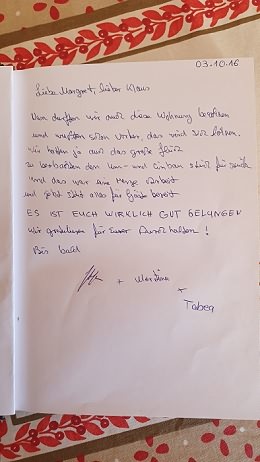 03.10.16
Liebe Margret, lieber Klaus
Nun durften wir auch diese Wohnung beziehen
und wußten schon vorher, das wird sich lohnen.
Wir hatten ja auch das große Glück
zu beobachten den Um- und Einbau Stück für Stück
und das war eine Menge Arbeit
und jetzt steht alles für Gäste bereit
ES IST EUCH WIRKLICH GUT GELUNGEN
Wir gratulieren für Euer Durchhalten!
Bis bald
+ Martina
+
Tabea